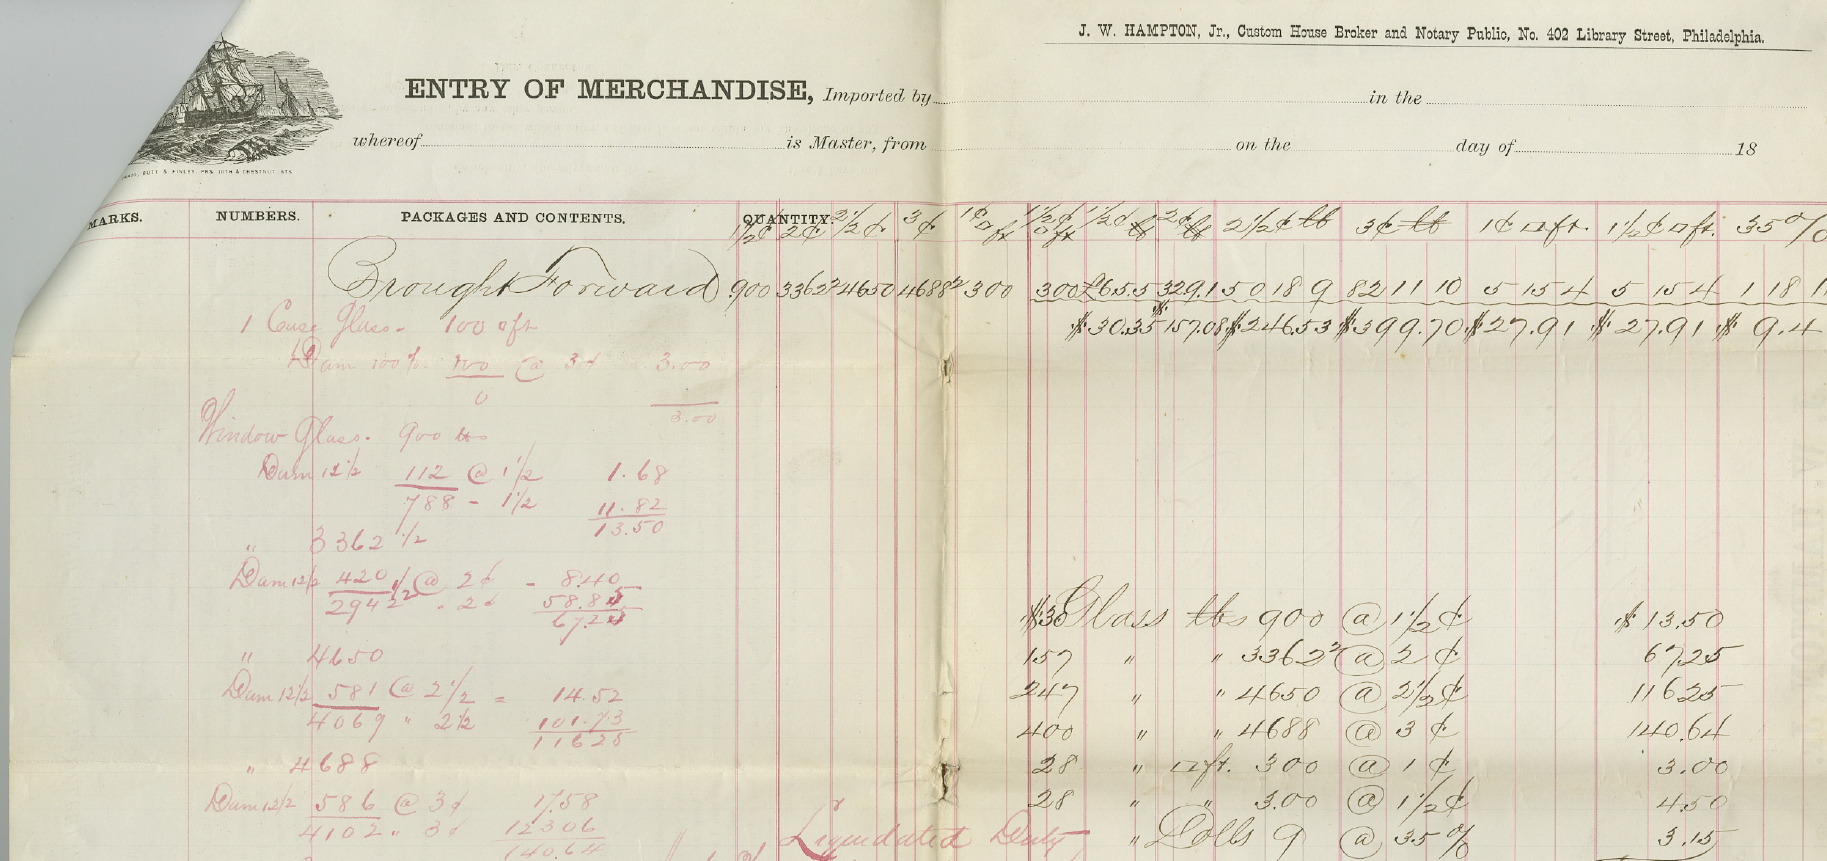 J. W. HAMPTON, Jr., Custom House Broker and Notary Public, No. 402 Library Street, Philadelphia.
ENTRY OF MERCHANDISE, Imported by in the
whereof is Master, from on the day of 18
BUTT & FINLEY, PRS. 10TH & CHESTNUT STS
MARKS. NUMBERS. PACKAGES AND CONTENTS. QUANTITY.
1½¢ 2¢ 2½¢ 3¢ 1¢ □ft 1½¢ □ft 1½¢ lb 2¢ lb 2½¢ lb 3¢ lb 1¢ □ft. 1½¢ □ft. 35%
Brought Forward 900 3362² 4650 4688² 300 300 £6.5.5 32.9.1 50 18 9 82 11 10 5 15 4 5 15 4 1 18 1
$30.35 $157.08 $246.53 $399.70 $27.91 $27.91 $9.4
1 Case Glass. 100 □ft
Dam 100% 100 @ 3¢ 3.00
0
3.00
Window Glass. 900 lbs
Dam 12½ 112 @ 1½ 1.68
788 - 1½ 11.82
13.50
" 3362½
Dam 12½ 420 ½ @ 2¢ - 8.40
2942 " 2¢ 58.85
67.25
" 4650
Dam 12½ 581 @ 2½ = 14.52
4069 " 2½ 101.73
116 25
" 4688
Dam 12½ 586 @ 3¢ 17 58
4102 " 3¢ 123 06
140.64
$30 Glass lbs 900 @ 1½¢ $13.50
157 " " 3362² @ 2¢ 67.25
247 " " 4650 @ 2½¢ 116 25
400 " " 4688 @ 3¢ 140.64
28 " □ft. 300 @ 1¢ 3.00
28 " " 3.00 @ 1½¢ 4.50
" Dolls 9 @ 35% 3.15
Liquidated Duty